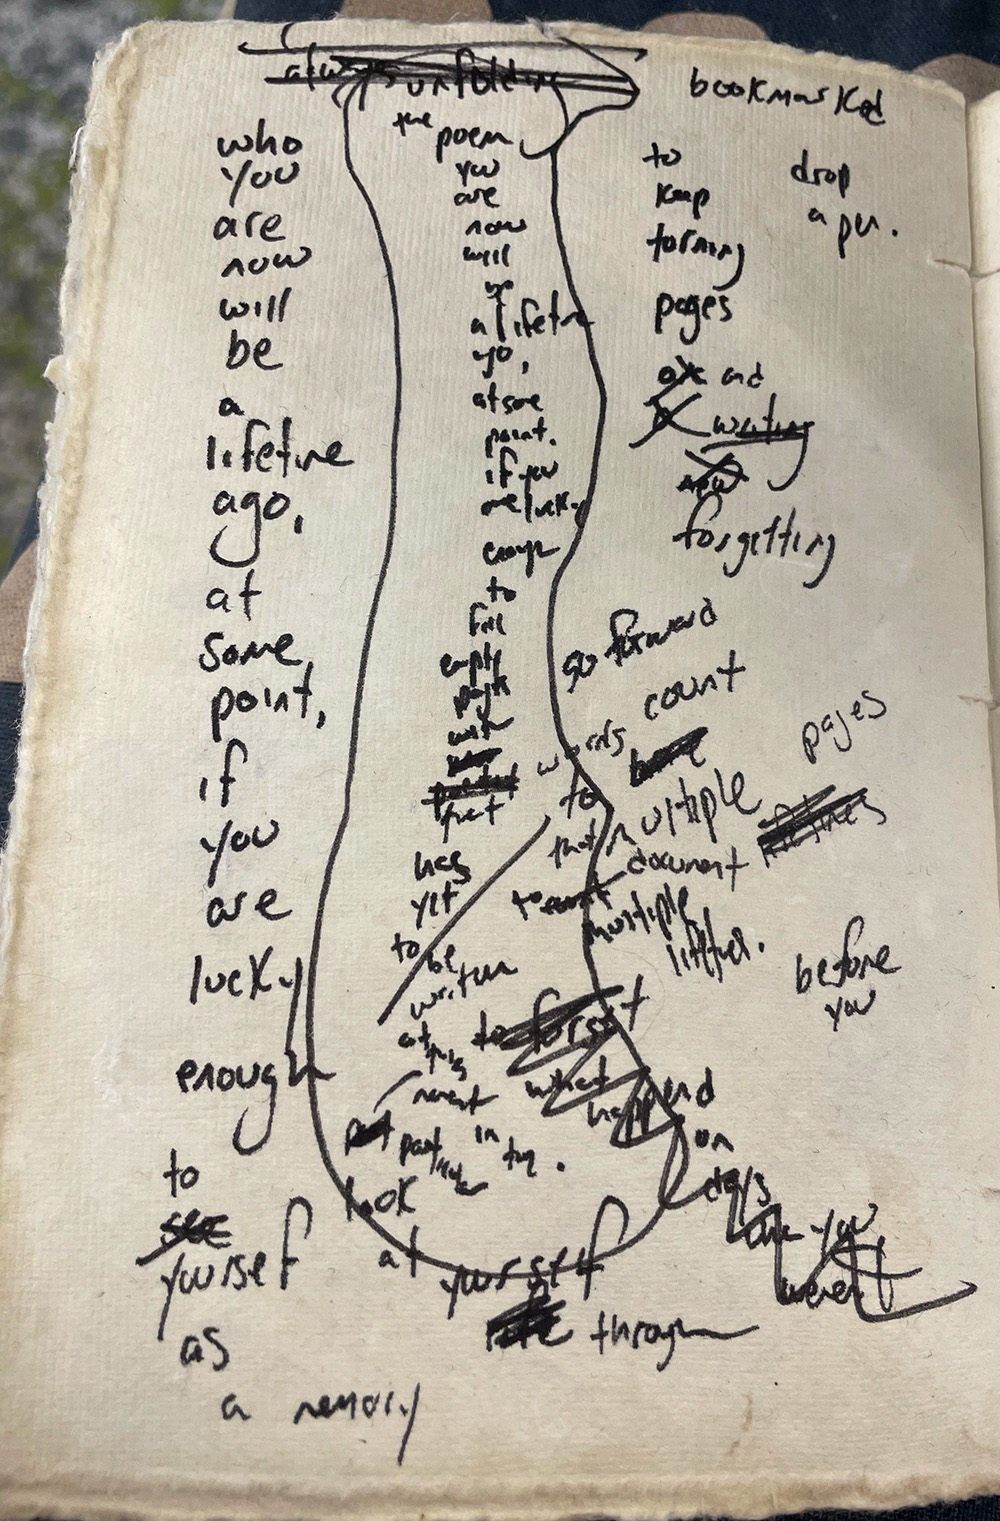 always unfolding
bookmarked
who
you
are
now
will
be
a
lifetime
ago,
at
some
point,
if
you
are
lucky
enough
to
see
yourself
as
a memory
the poem
you
are
now
will
be
a lifetime
ago,
at some
point.
if you
are lucky
enough
to
fill
empty
pages
with
that
has
yet
to be
written
at this
moment
in
time.
look
at yourself
through
to
keep
turning
pages
and
writing
now
forgetting
drop
a pen.
go forward
count
words
to
multiple
pages
lifetimes
that
document
to count
multiple
lifetimes.
before
you
to forget
what
happend
on
days
you
weren't